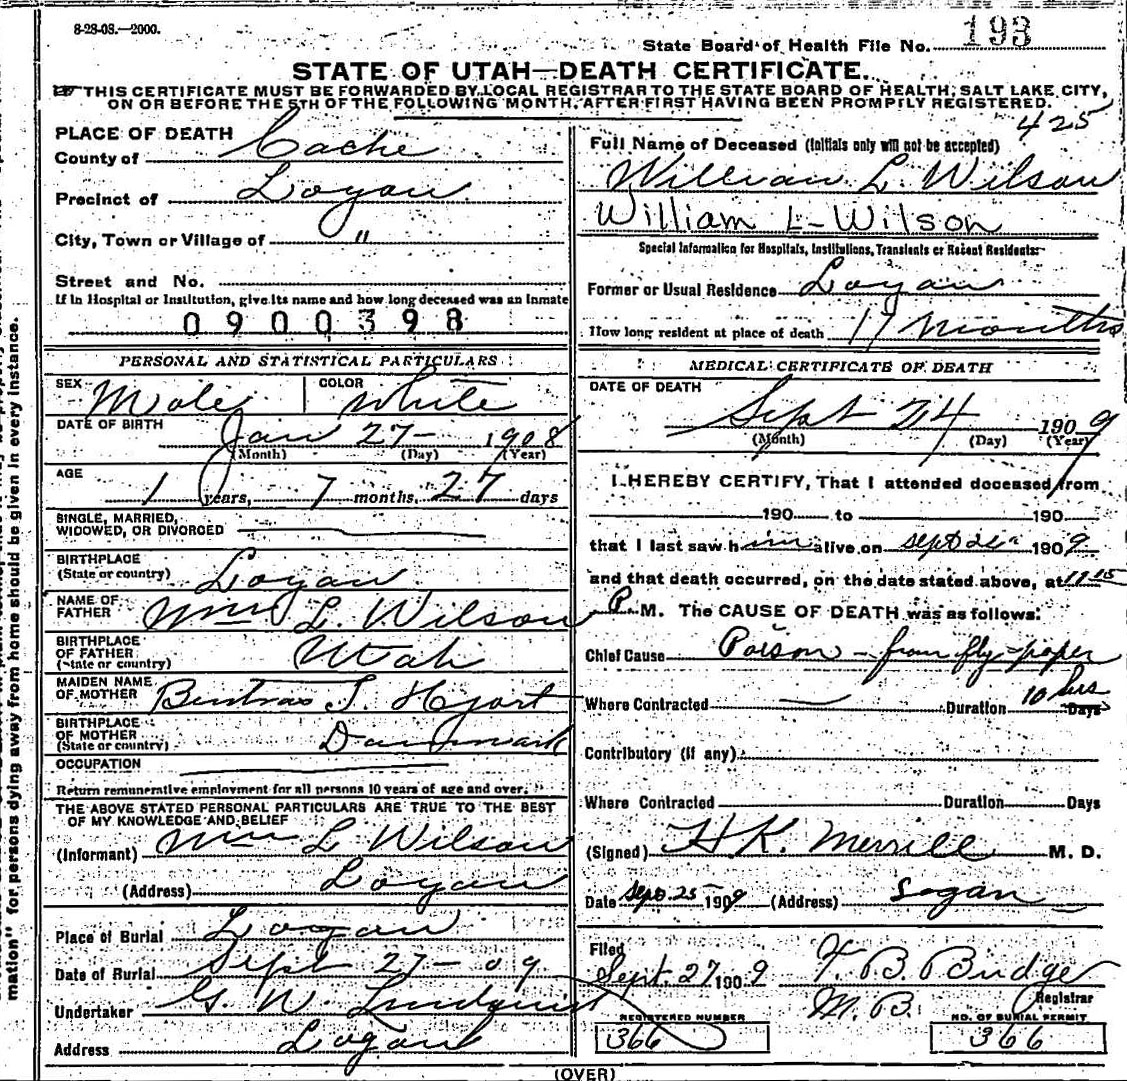 8-28-08.—2000.
State Board of Health File No. 193
STATE OF UTAH—DEATH CERTIFICATE.
THIS CERTIFICATE MUST BE FORWARDED BY LOCAL REGISTRAR TO THE STATE BOARD OF HEALTH, SALT LAKE CITY,
ON OR BEFORE THE 5TH OF THE FOLLOWING MONTH, AFTER FIRST HAVING BEEN PROMPTLY REGISTERED.
425
PLACE OF DEATH
County of Cache
Precinct of Logan
City, Town or Village of "
Street and No.
If in Hospital or Institution, give its name and how long deceased was an inmate
0900398
PERSONAL AND STATISTICAL PARTICULARS
SEX Male COLOR White
DATE OF BIRTH Jan 27- 1908
(Month) (Day) (Year)
AGE 1 years, 7 months, 27 days
SINGLE, MARRIED,
WIDOWED, OR DIVORCED
BIRTHPLACE
(State or country) Logan
NAME OF
FATHER Wm L. Wilson
BIRTHPLACE
OF FATHER
(State or country) Utah
MAIDEN NAME
OF MOTHER Hjort
BIRTHPLACE
OF MOTHER
(State or country) Danmark
OCCUPATION
Return remunerative employment for all persons 10 years of age and over.
THE ABOVE STATED PERSONAL PARTICULARS ARE TRUE TO THE BEST
OF MY KNOWLEDGE AND BELIEF
(Informant) Wm L Wilson
(Address) Logan
Place of Burial Logan
Date of Burial Sept 27-09
Undertaker G. W. Lundquist
Address Logan
Full Name of Deceased (Initials only will not be accepted)
William L. Wilson
William L-Wilson
Special Information for Hospitals, Institutions, Transients or Recent Residents:
Former or Usual Residence Logan
How long resident at place of death 17 months
MEDICAL CERTIFICATE OF DEATH
DATE OF DEATH
Sept 24 1909
(Month) (Day) (Year)
I HEREBY CERTIFY, That I attended deceased from
190 to 190
that I last saw him alive on Sept 1909
and that death occurred, on the date stated above, at
P.M. The CAUSE OF DEATH was as follows:
Chief Cause Poison - from fly-paper
Where Contracted Duration 10 hrs Days
Contributory (if any)
Where Contracted Duration Days
(Signed) H.K. Merrill M. D.
Date Sept 25 1909 (Address) Logan
Filed
Sept. 27 1909 F. B. Budge
M. B. Registrar
REGISTERED NUMBER
366
NO. OF BURIAL PERMIT
366
(OVER)
mation" for persons dying away from home should be given in every instance.